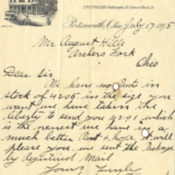 Portsmouth, Ohio July 17 1895
Mr August Kille
Archers Fork
Ohio
Dear Sir
We have no Boots in
stock of 4205. in the size you
want we have taken the
liberty to send you 4291 which
is the nearest we have in a
much better Boot & hope it will
please you. we sent the Package
by Registered Mail
Yours Truly